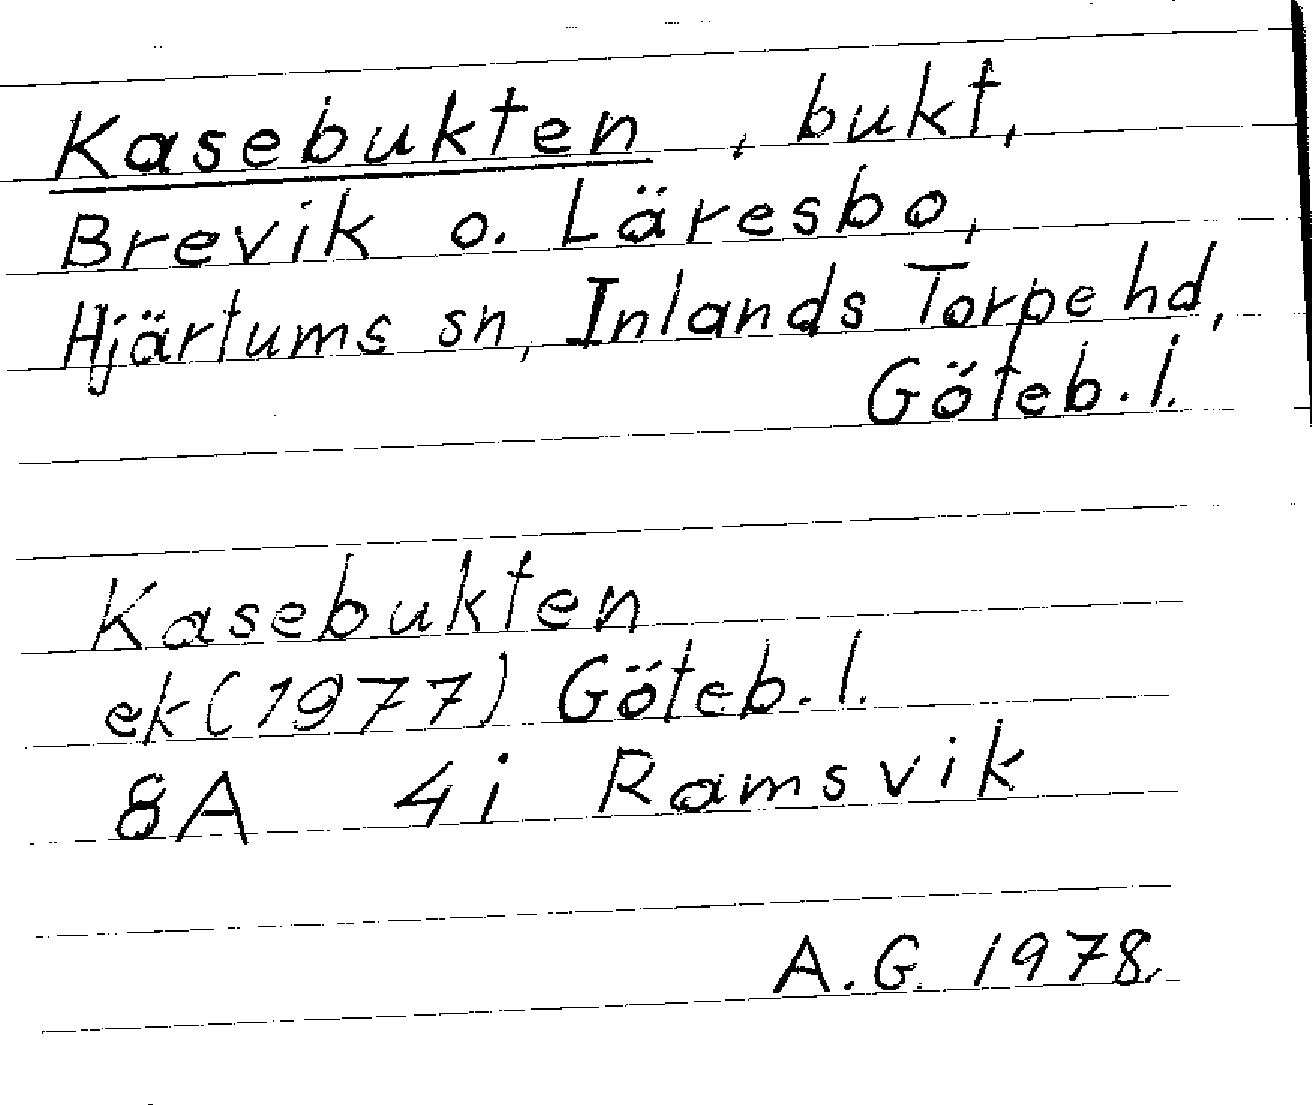 Kasebukten, bukt,
Brevik o. Läresbo,
Hjärtums sn, Inlands Torpe hd,
Göteb. l.
Kasebukten
ek (1977) Göteb. l.
8A 4i Ramsvik
A.G. 1978.